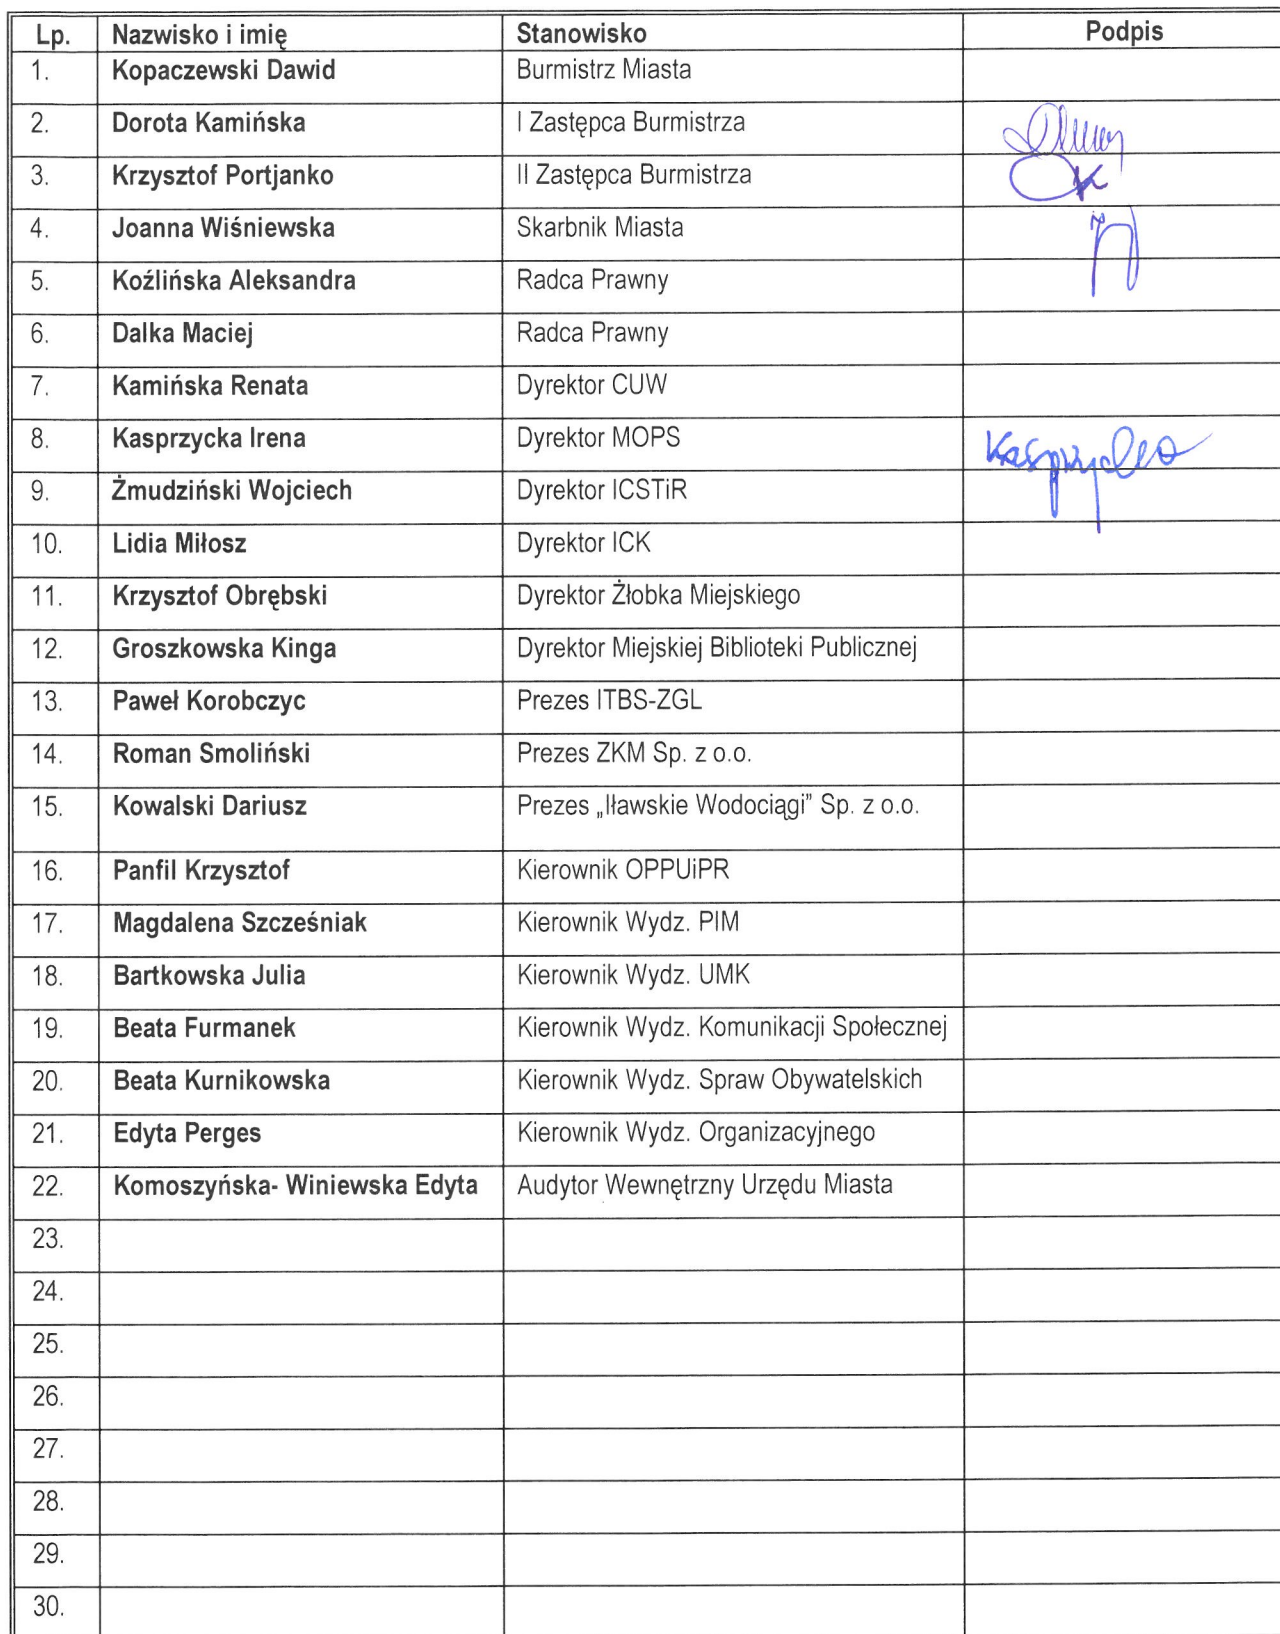 Lp. Nazwisko i imię Stanowisko Podpis
1. Kopaczewski Dawid Burmistrz Miasta
2. Dorota Kamińska I Zastępca Burmistrza
3. Krzysztof Portjanko II Zastępca Burmistrza
4. Joanna Wiśniewska Skarbnik Miasta
5. Koźlińska Aleksandra Radca Prawny
6. Dalka Maciej Radca Prawny
7. Kamińska Renata Dyrektor CUW
8. Kasprzycka Irena Dyrektor MOPS
9. Żmudziński Wojciech Dyrektor ICSTiR
10. Lidia Miłosz Dyrektor ICK
11. Krzysztof Obrębski Dyrektor Żłobka Miejskiego
12. Groszkowska Kinga Dyrektor Miejskiej Biblioteki Publicznej
13. Paweł Korobczyc Prezes ITBS-ZGL
14. Roman Smoliński Prezes ZKM Sp. z o.o.
15. Kowalski Dariusz Prezes „Iławskie Wodociągi” Sp. z o.o.
16. Panfil Krzysztof Kierownik OPPUiPR
17. Magdalena Szcześniak Kierownik Wydz. PIM
18. Bartkowska Julia Kierownik Wydz. UMK
19. Beata Furmanek Kierownik Wydz. Komunikacji Społecznej
20. Beata Kurnikowska Kierownik Wydz. Spraw Obywatelskich
21. Edyta Perges Kierownik Wydz. Organizacyjnego
22. Komoszyńska- Winiewska Edyta Audytor Wewnętrzny Urzędu Miasta
23.
24.
25.
26.
27.
28.
29.
30.